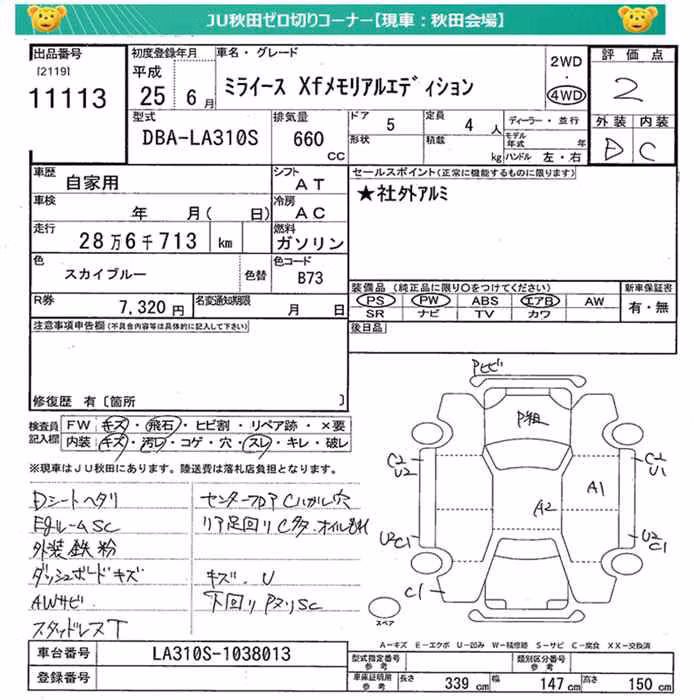 JU秋田ゼロ切りコーナー【現車：秋田会場】
出品番号
[2119]
11113
初度登録年月
平成
25 6月
車名・グレード
ミライース Xfメモリアルエディション
2WD
・
4WD
評価点
2
外装 内装
D C
型式
DBA-LA310S
排気量
660
CC
ドア 5
定員 4人
形状
積載 kg
ディーラー・並行
モデル年式 年
ハンドル 左・右
車歴
自家用
シフト
AT
車検
年 月( 日)
冷房
AC
走行
28万6千713 km
燃料
ガソリン
色
スカイブルー
色替
色コード
B73
R券
7,320円
名変通知期限
月 日
セールスポイント(正常に機能するものに限ります)
★社外アルミ
装備品(純正品に限り○をつけてください)
PS PW ABS エアB AW
SR ナビ TV カワ
新車保証書
有・無
後日品
注意事項申告欄(不具合内容等は具体的に記入して下さい)
修復歴 有〔箇所 〕
検査員
記入欄
FW キズ・飛石・ヒビ割・リペア跡・×要
内装 キズ・汚レ・コゲ・穴・スレ・キレ・破レ
※現車はJU秋田にあります。陸送費は落札店負担となります。
Dシートヘタリ
Egルーム SC
外装鉄粉
ダッシュボードキズ
AWサビ
スタッドレスT
センターフロア Cハガレ穴
リア足回りCタ・オイルもれ
キズ・U
下回りPヌリSC
Pヒビ
P粗
C2
U2
C2
U1
A1
A2
U2
C1
U2
C1
C1
スペア
A-キズ E-エクボ U-凹み W-補修跡 S-サビ C-腐食 XX-交換済
車台番号
LA310S-1038013
登録番号
型式指定番号
参考
類別区分番号
参考
車庫証明用
参考
長さ 339cm
幅 147cm
高さ 150cm